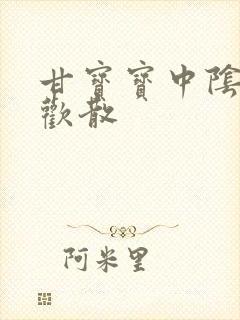 甘寶寶中陰
歡散
阿米里